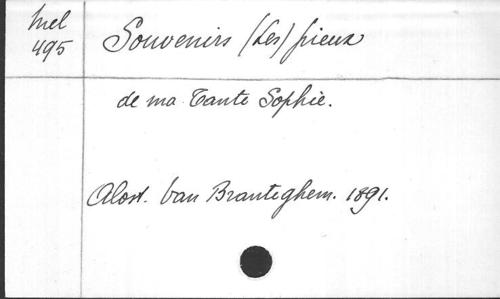 Mel
495
Souvenirs (Les) pieux
de ma Tante Sophie.
Alost. Van Branteghem. 1891.